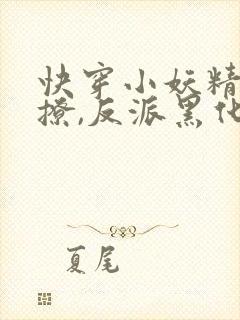 快穿小妖精
撩,反派黑化
夏尾